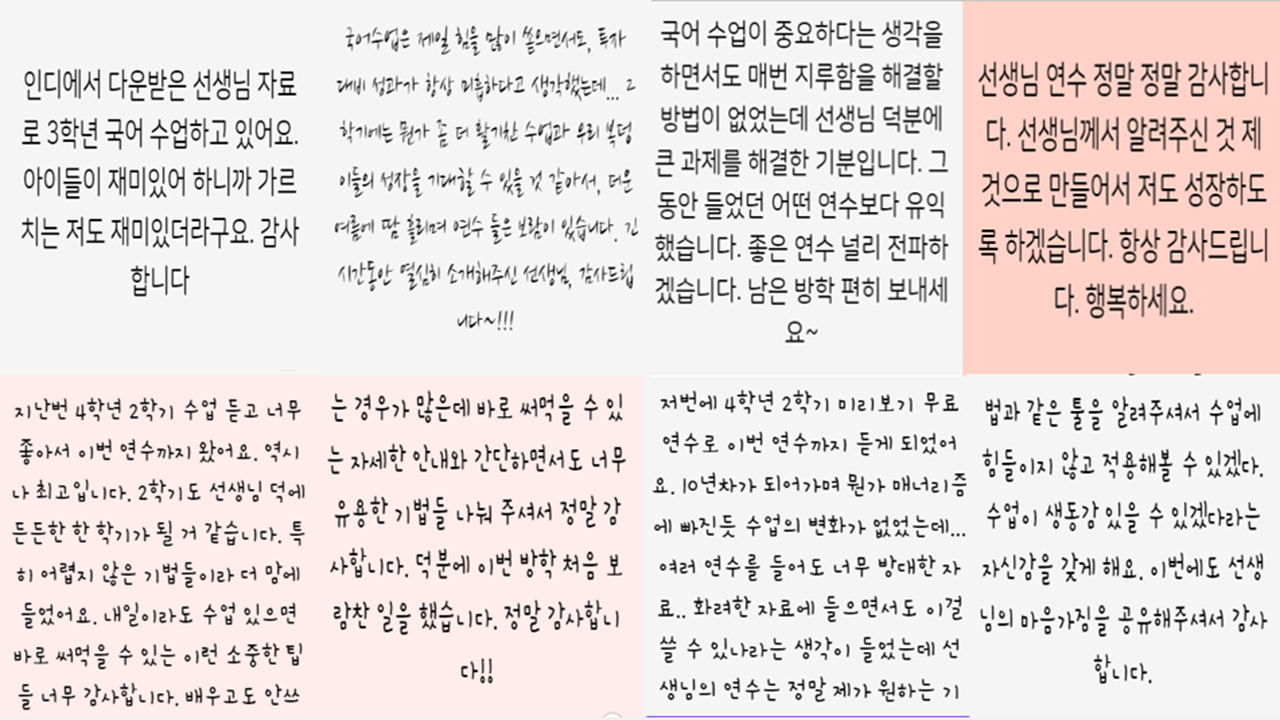 인디에서 다운받은 선생님 자료
로 3학년 국어 수업하고 있어요.
아이들이 재미있어 하니까 가르
치는 저도 재미있더라구요. 감사
합니다
국어수업은 제일 힘을 많이 쏟으면서도, 투자
대비 성과가 항상 미흡하다고 생각했는데... 2
학기에는 뭔가 좀 더 활기찬 수업과 우리 복덩
이들의 성장을 기대할 수 있을 것 같아서, 더운
여름에 땀 흘리며 연수 들은 보람이 있습니다. 긴
시간동안 열심히 소개해주신 선생님, 감사드립
니다~!!!
국어 수업이 중요하다는 생각을
하면서도 매번 지루함을 해결할
방법이 없었는데 선생님 덕분에
큰 과제를 해결한 기분입니다. 그
동안 들었던 어떤 연수보다 유익
했습니다. 좋은 연수 널리 전파하
겠습니다. 남은 방학 편히 보내세
요~
선생님 연수 정말 정말 감사합니
다. 선생님께서 알려주신 것 제
것으로 만들어서 저도 성장하도
록 하겠습니다. 항상 감사드립니
다. 행복하세요.
지난번 4학년 2학기 수업 듣고 너무
좋아서 이번 연수까지 왔어요. 역시
나 최고입니다. 2학기도 선생님 덕에
든든한 한 학기가 될 거 같습니다. 특
히 어렵지 않은 기법들이라 더 맘에
들었어요. 내일이라도 수업 있으면
바로 써먹을 수 있는 이런 소중한 팁
들 너무 감사합니다. 배우고도 안쓰
는 경우가 많은데 바로 써먹을 수 있
는 자세한 안내와 간단하면서도 너무
유용한 기법들 나눠 주셔서 정말 감
사합니다. 덕분에 이번 방학 처음 보
람찬 일을 했습니다. 정말 감사합니
다!!
저번에 4학년 2학기 미리보기 무료
연수로 이번 연수까지 듣게 되었어
요. 10년차가 되어가며 뭔가 매너리즘
에 빠진듯 수업의 변화가 없었는데...
여러 연수를 들어도 너무 방대한 자
료.. 화려한 자료에 들으면서도 이걸
쓸 수 있나라는 생각이 들었는데 선
생님의 연수는 정말 제가 원하는 기
법과 같은 툴을 알려주셔서 수업에
힘들이지 않고 적용해볼 수 있겠다.
수업이 생동감 있을 수 있겠다라는
자신감을 갖게 해요. 이번에도 선생
님의 마음가짐을 공유해주셔서 감사
합니다.